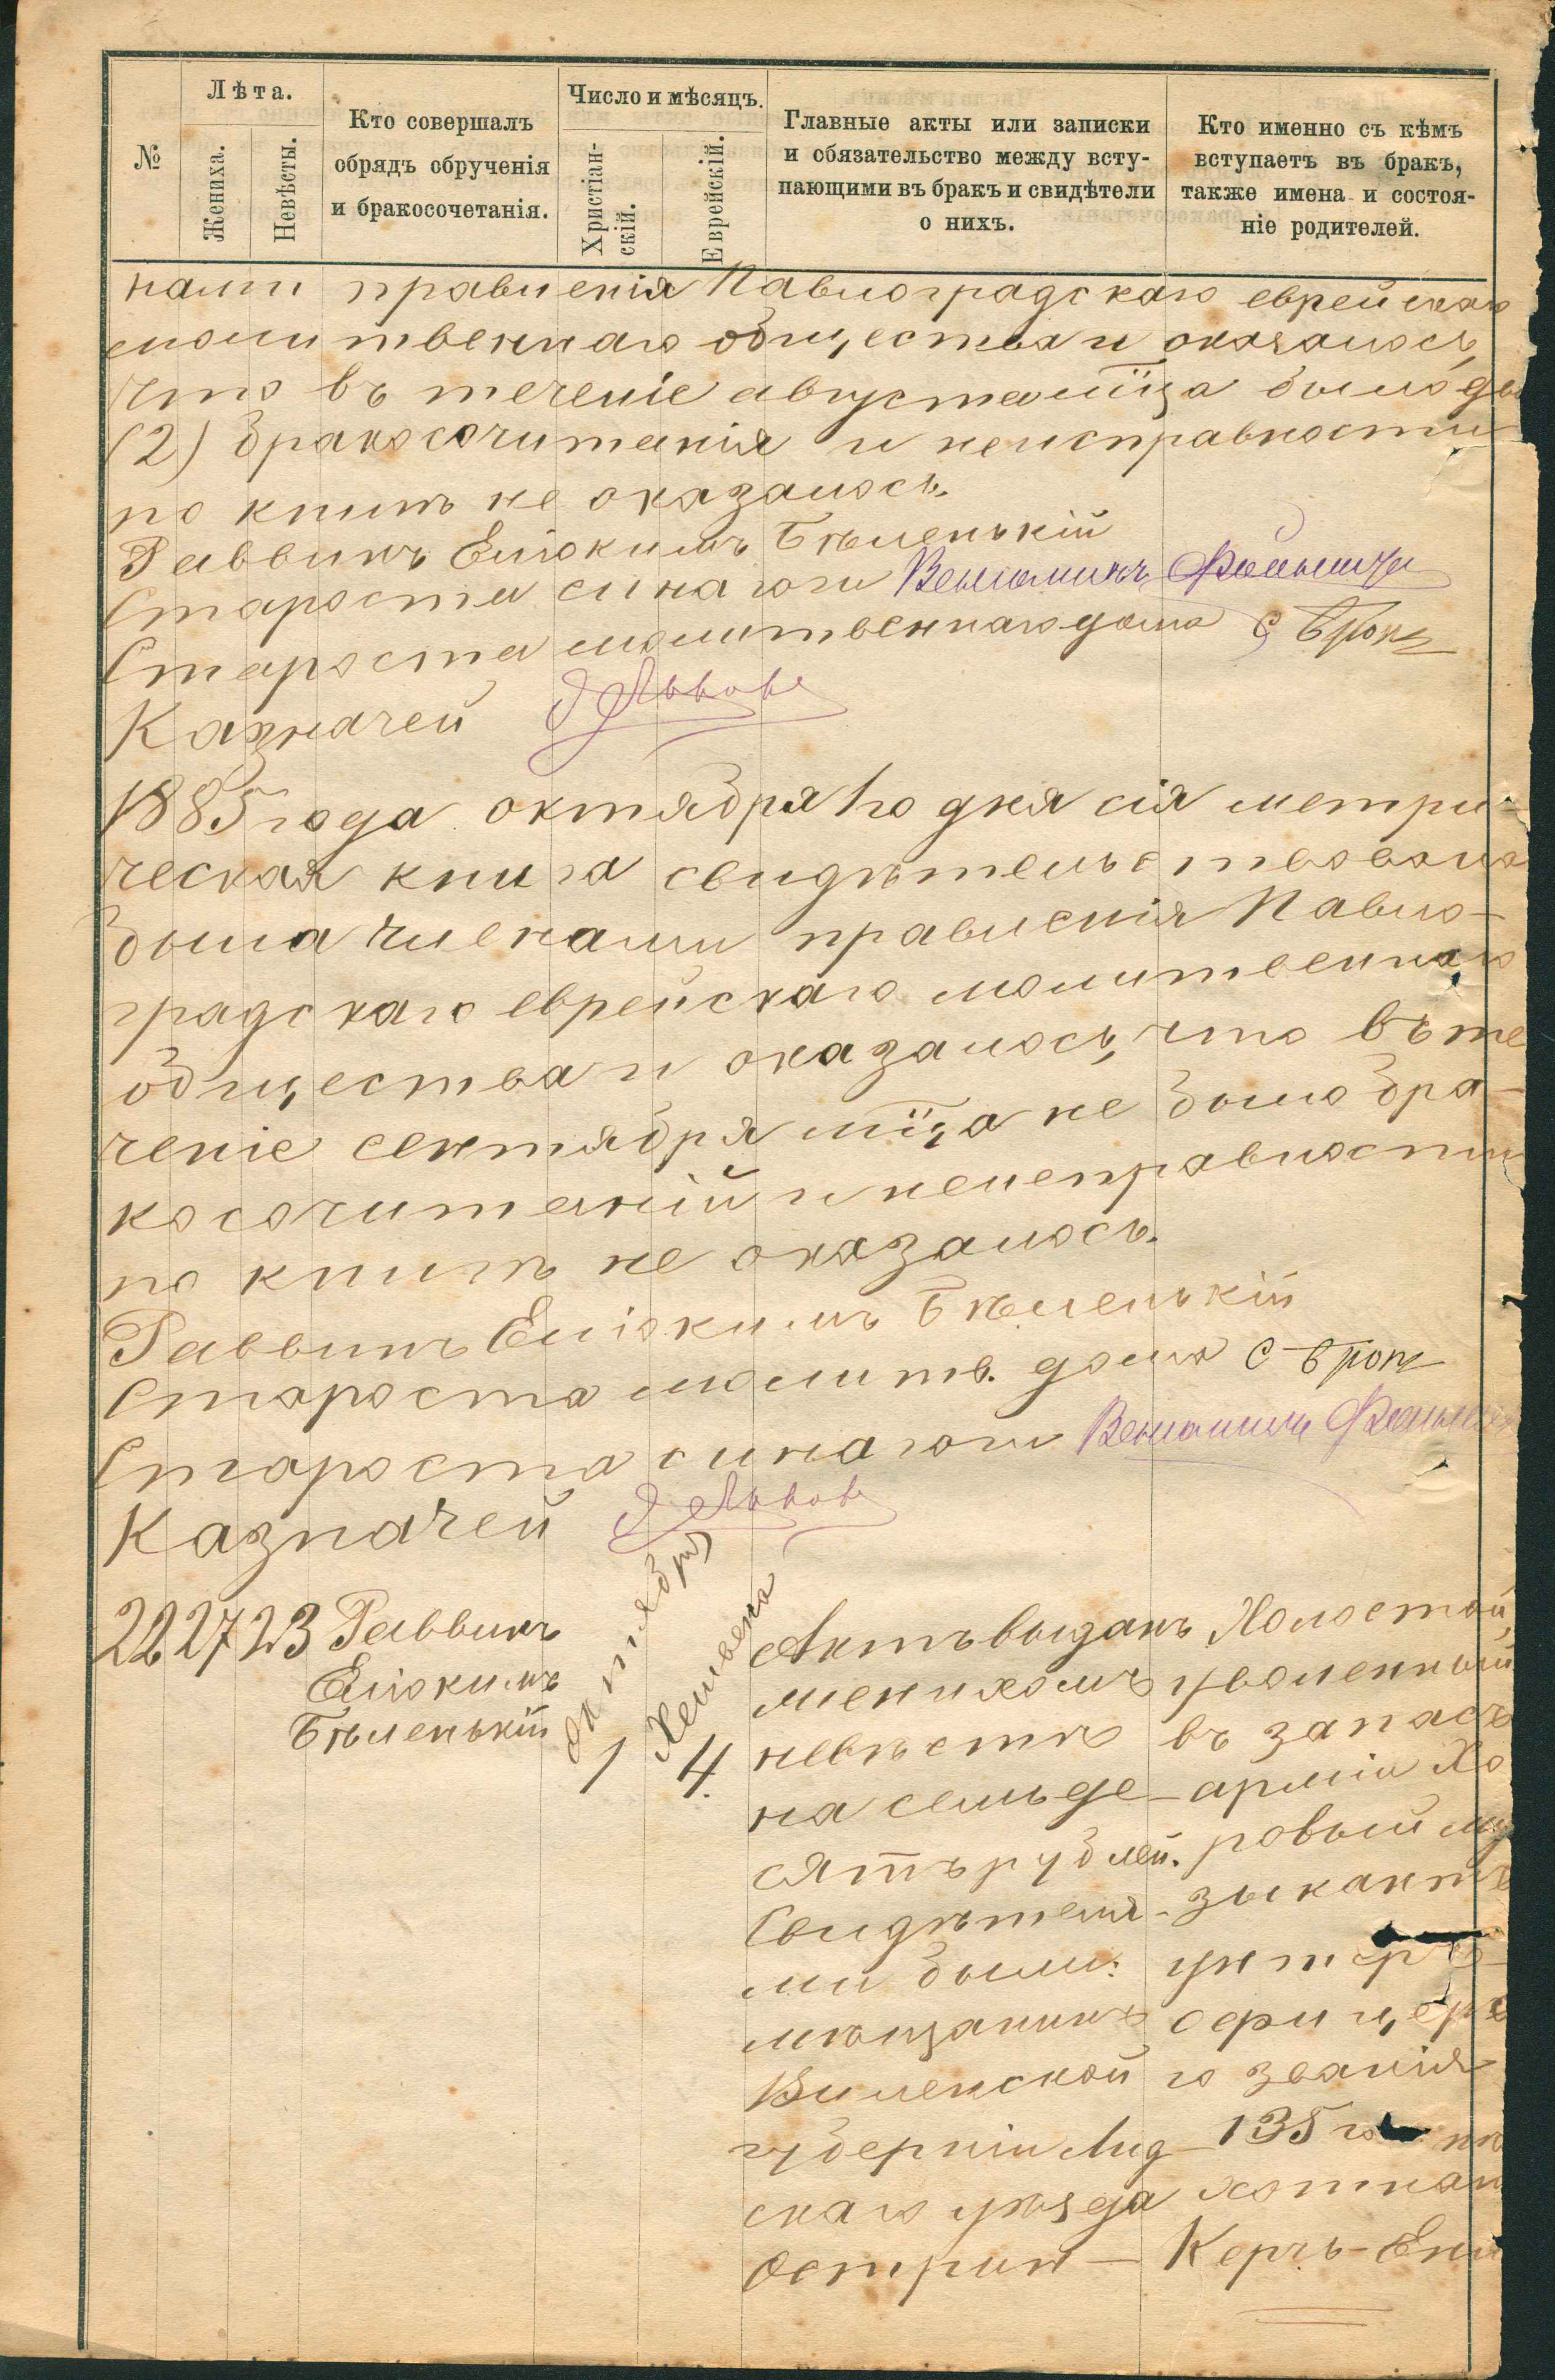 №
Лѣта.
Жениха.
Невѣсты.
Кто совершалъ
обрядъ обрученія
и бракосочетанія.
Число и мѣсяцъ.
Христіан-
скій.
Еврейскій.
Главные акты или записки
и обязательство между всту-
пающими въ бракъ и свидѣтели
о нихъ.
Кто именно съ кѣмъ
вступаетъ въ бракъ,
также имена и состоя-
ніе родителей.
нами правленія Павлоградскаго еврейскаго
молитвеннаго общества и оказалось,
что въ теченіе августа мѣца было два
(2) бракосочитанія и неисправности
по книгѣ не оказалось.
Раввинъ Еліокимъ Бѣленькій
Староста синагоги Веніаминъ
Староста молитвеннаго дома С
Казначей Львовъ
1885 года октября 1го дня сія метри-
ческая книга свидѣтельствована
была членами правленія Павло-
градскаго еврейскаго молитвеннаго
общества и оказалось, что въ те
ченіе сентября мѣца не было бра-
косочитаній и неисправности
по книгѣ не оказалось.
Раввинъ Еліокимъ Бѣленькій
Староста молитв. дома С
Староста синагоги Веніаминъ
Казначей Львовъ
22 27 23 Раввинъ
Еліокимъ
Бѣленькій
октября
1
Хешвена
4.
Актъ выданъ
женихомъ
невѣстѣ
на семьде-
сятъ рублей.
Свидѣтеля-
ми были:
мѣщанинъ
Виленской
губерніи Лид-
скаго уѣзда
Острин-
Холостой,
уволенный
въ запасъ
арміи Хо
ровый му
зыкантъ
унтеръ-
офицерс
го званія
135 го пѣ
хотнаго
Керчь-Ени